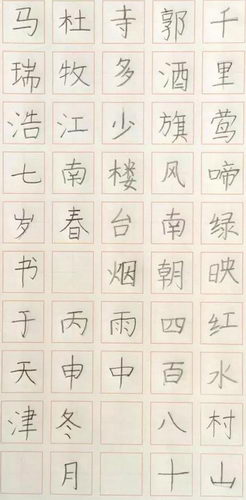 千里莺啼绿映红水村山
郭酒旗风南朝四百八十
寺多少楼台烟雨中
杜牧江南春 丙申冬月
马瑞浩七岁书于天津